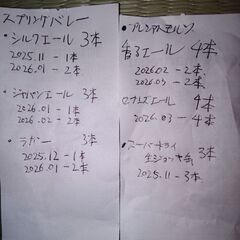 スプリングバレー
・シルクエール 3本
2025.11 - 1本
2026.01 - 2本
・ジャパンエール 3本
2026.01 - 1本
2026.02 - 2本
・ラガー 3本
2025.12 - 1本
2026.01 - 2本
・プレミアムモルツ
香るエール 4本
2026.02 - 2本
2026.03 - 2本
エール 4本
2026.03 - 4本
・スーパードライ
生ジョッキ缶 3本
2025.11 - 3本